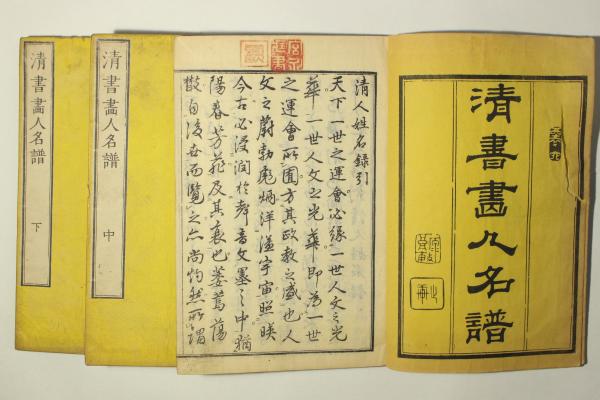 清書畫人名譜
清人姓名錄引
天下一世之運會必緣一世人文之光
華一世人文之光華即為一世
之運會所囿方其政教之盛也人
文之蔚勃彪炳洋溢宇宙照暎
今古必浸潤於聲音文墨之中猶
陽春芳菲及其衰也萎蔫蕩
散自後世而覽之亦尚灼然所謂
清書畫人名譜 中
清書畫人名譜 下